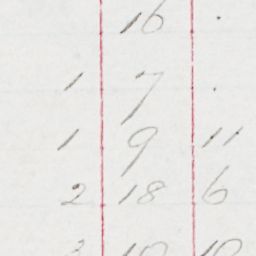 16 .
1 7 .
1 9 11
2 18 6
10 10